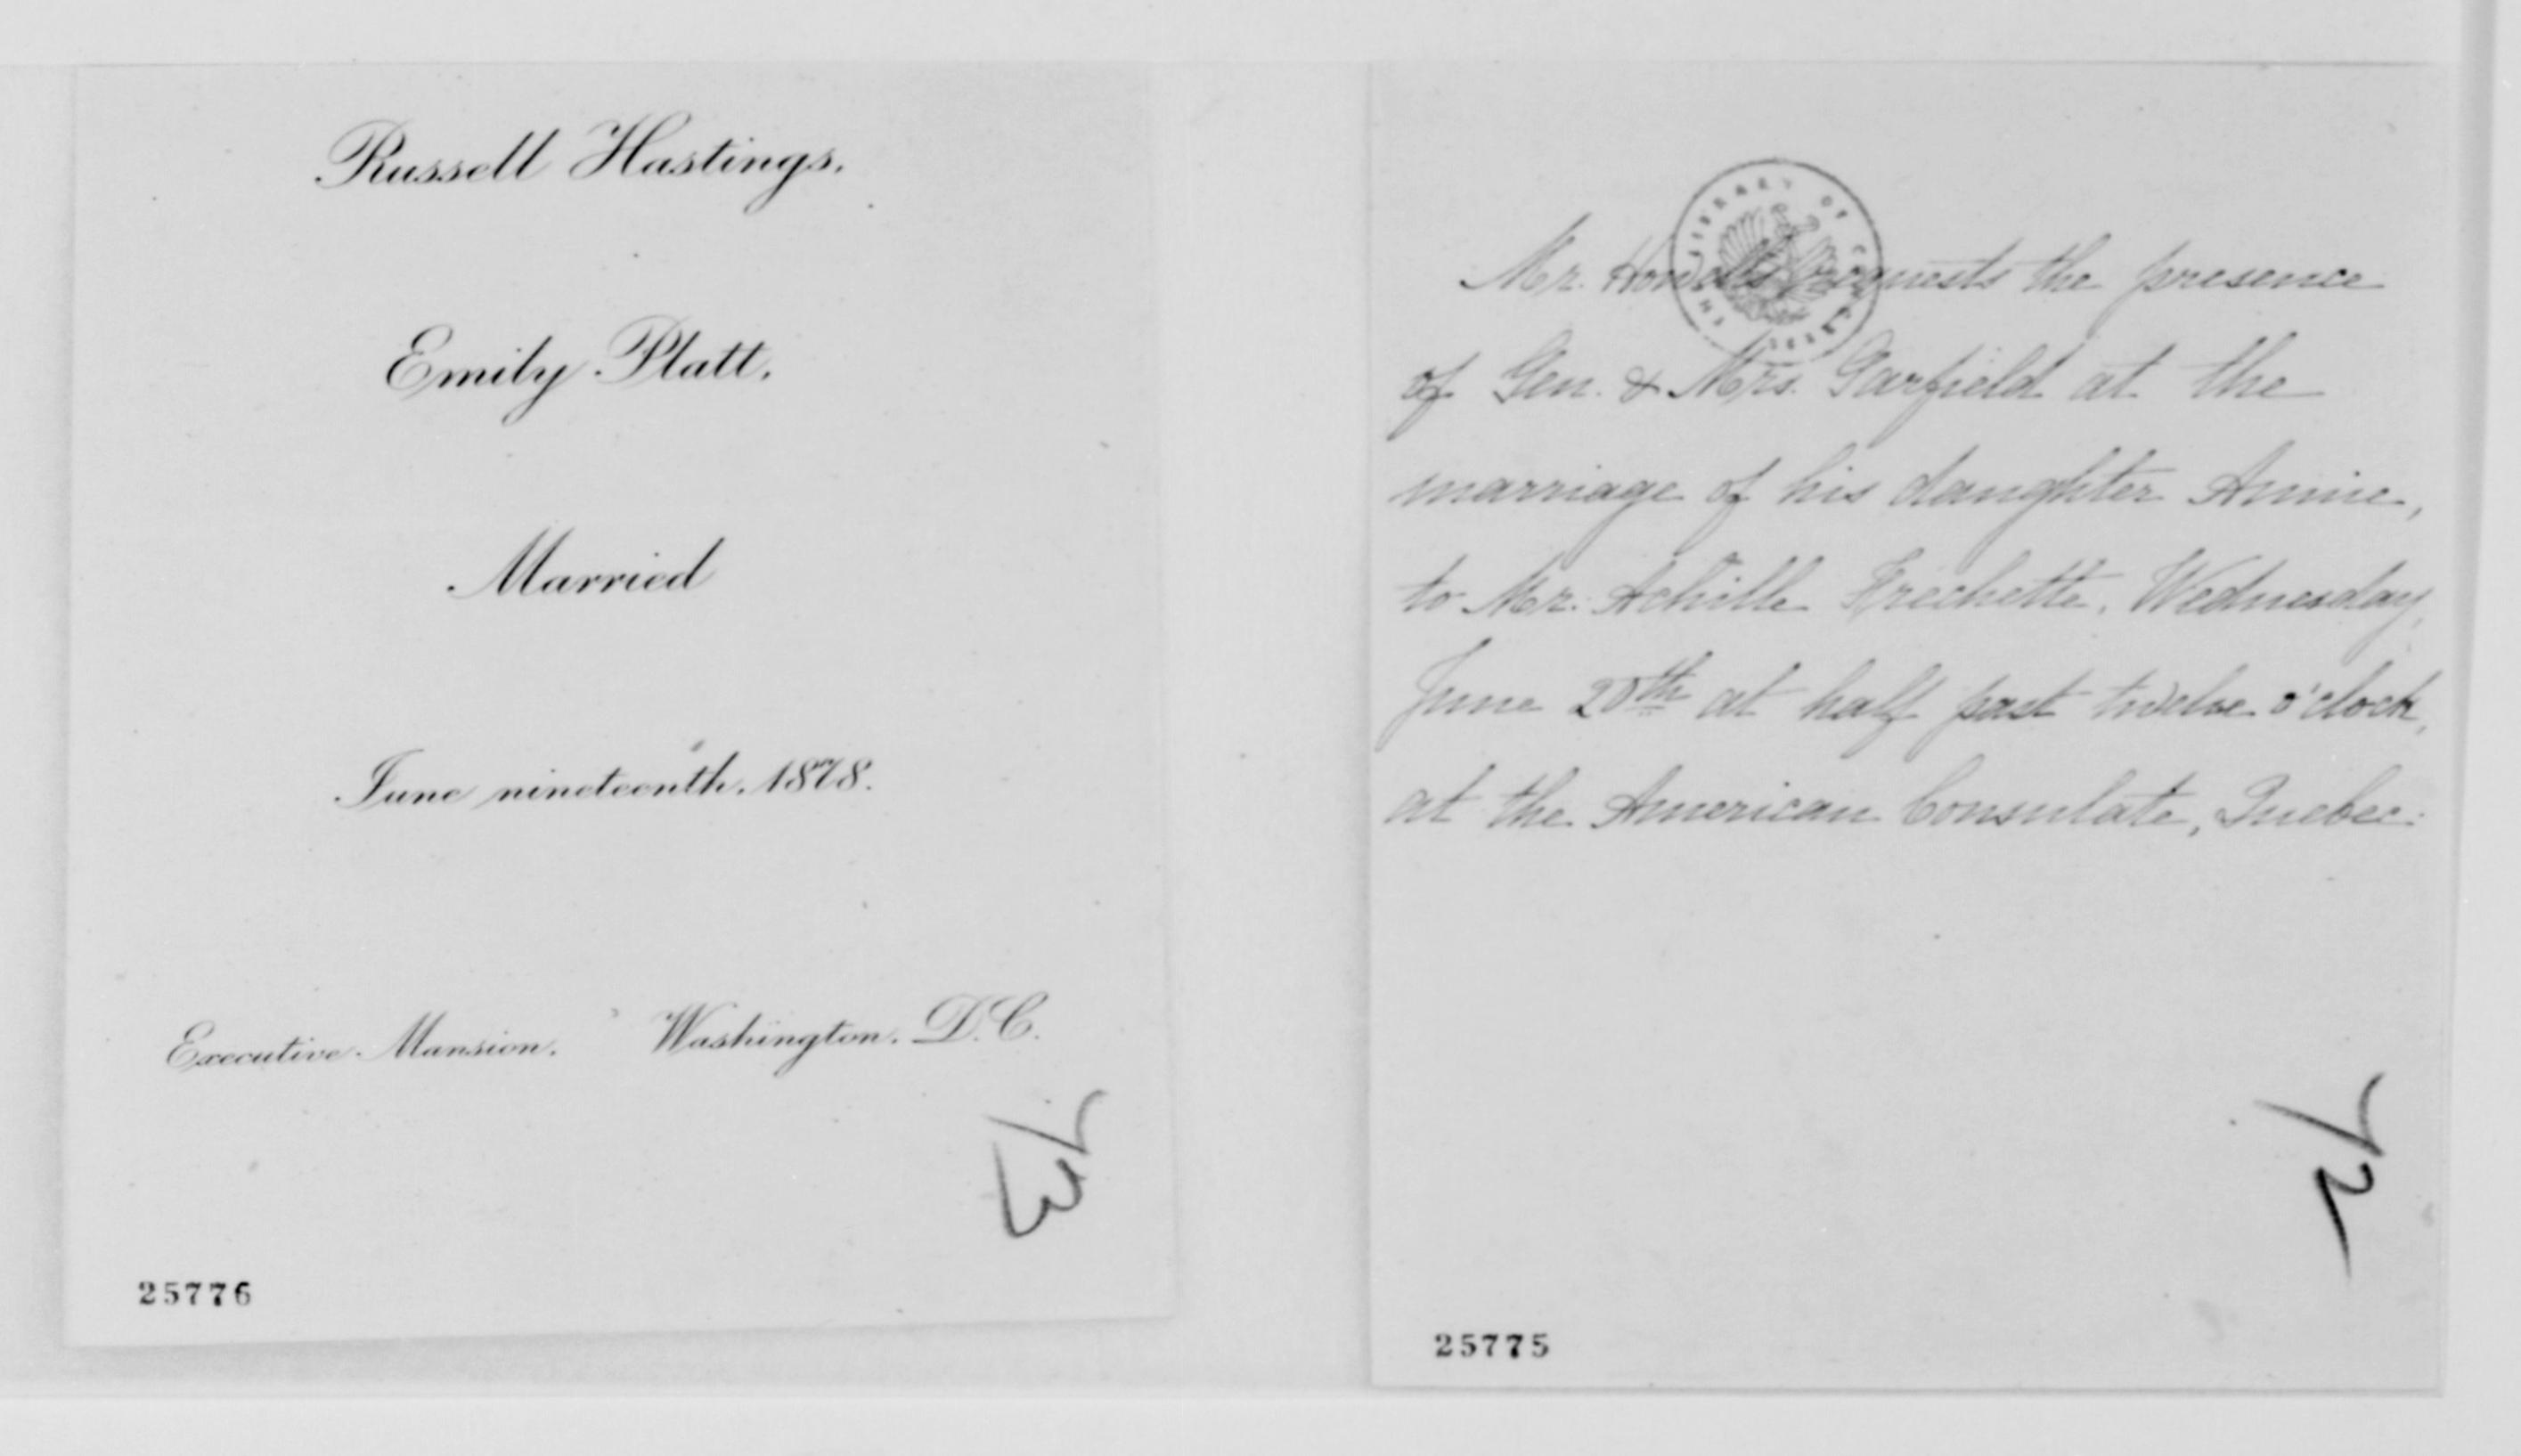 Russell Hastings.
Emily Platt.
Married
June nineteenth. 1878.
Executive Mansion. Washington. D.C.
73
25776
THE LIBRARY OF CONGRESS
Mr. Howells requests the presence
of Gen. & Mrs. Garfield at the
marriage of his daughter Annie,
to Mr. Achille Frechette, Wednesday,
June 20th at half past twelve o'clock,
at the American Consulate, Quebec.
72
25775